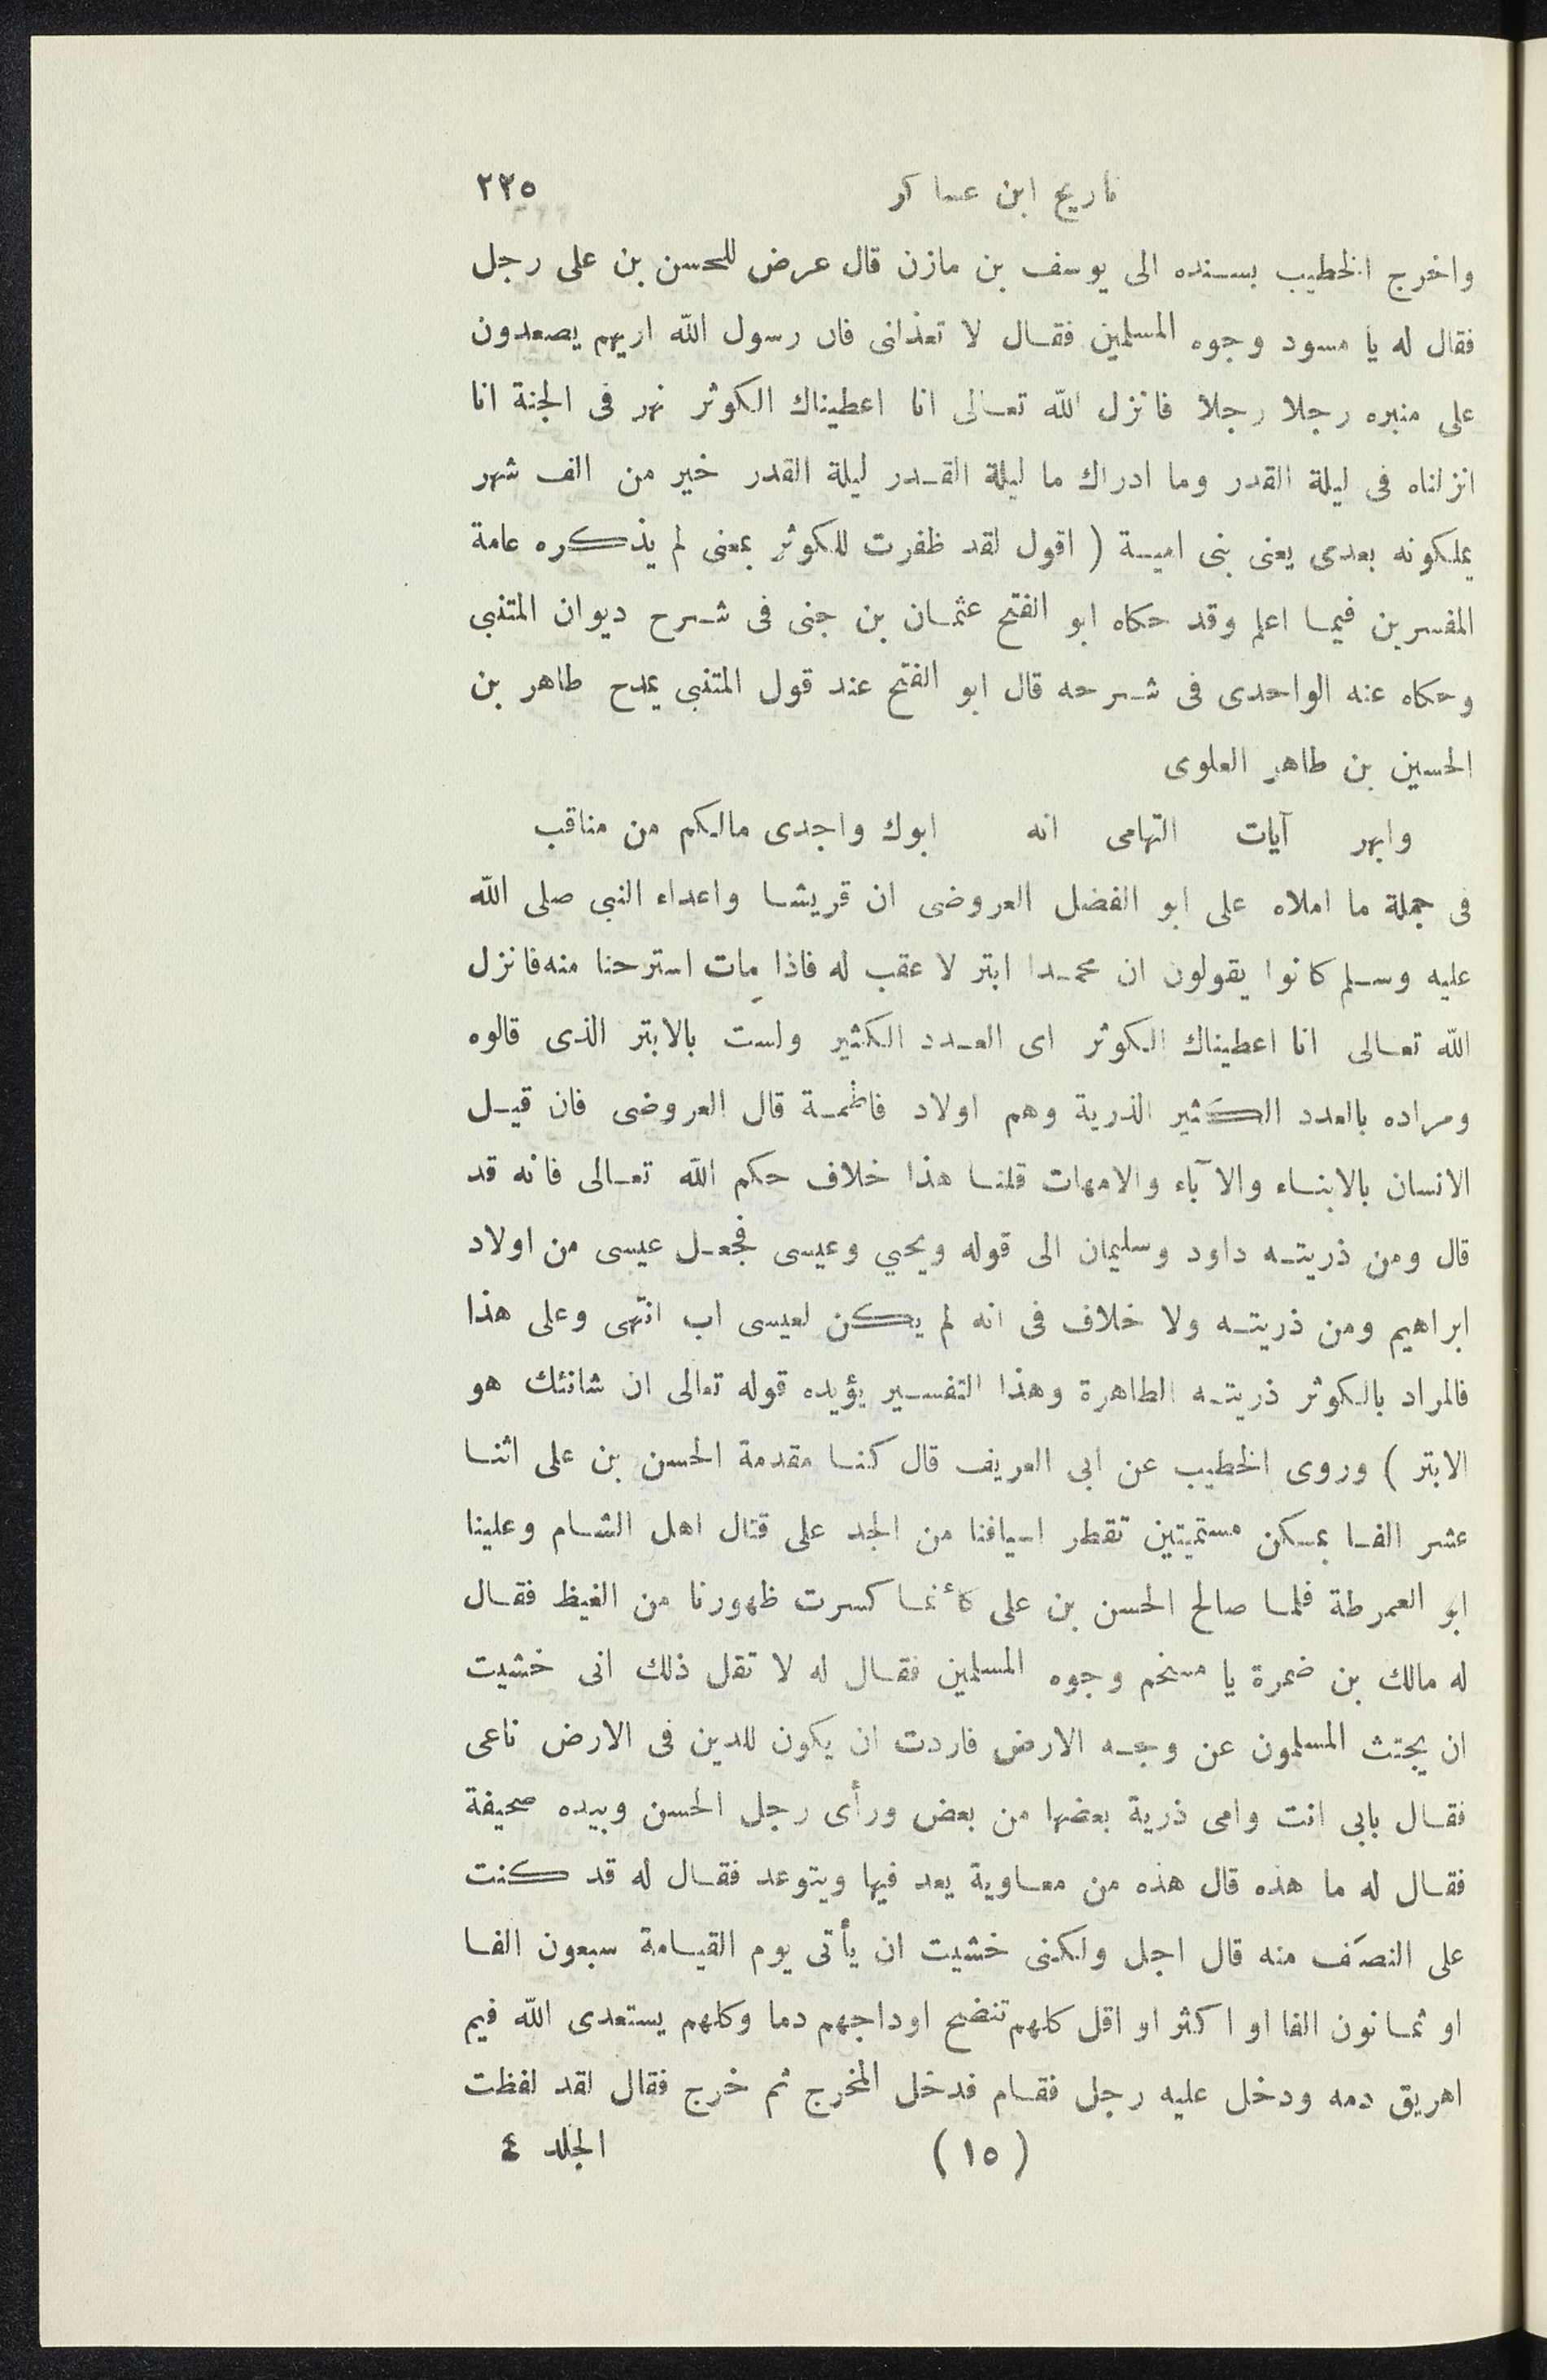 تاريخ ابن عساكر ٢٢٥
واخرج الخطيب بسنده الى يوسف بن مازن قال عرض للحسن بن على رجل
فقال له يا مسود وجوه المسلمين فقال لا تعذلنى فان رسول الله اريهم يصعدون
على منبره رجلا رجلا فانزل الله تعالى انا اعطيناك الكوثر نهر فى الجنة انا
انزلناه فى ليلة القدر وما ادراك ما ليلة القدر ليلة القدر خير من الف شهر
يملكونه بعدى يعنى بنى امية ( اقول لقد ظفرت للكوثر بمعنى لم يذكره عامة
المفسرين فيما اعلم وقد حكاه ابو الفتح عثمان بن جنى فى شرح ديوان المتنبى
وحكاه عنه الواحدى فى شرحه قال ابو الفتح عند قول المتنبى يمدح طاهر بن
الحسين بن طاهر العلوى
وابهر آيات التهامى انه ابوك واجدى مالكم من مناقب
فى جملة ما املاه على ابو الفضل العروضى ان قريشا واعداء النبى صلى الله
عليه وسلم كانوا يقولون ان محمدا ابتر لا عقب له فاذا مات استرحنا منه فانزل
الله تعالى انا اعطيناك الكوثر اى العدد الكثير ولست بالابتر الذى قالوه
ومراده بالعدد الكثير الذرية وهم اولاد فاطمة قال العروضى فان قيل
الانسان بالابناء والآباء والامهات قلنا هذا خلاف حكم الله تعالى فانه قد
قال ومن ذريته داود وسليمان الى قوله ويحيي وعيسى فجعل عيسى من اولاد
ابراهيم ومن ذريته ولا خلاف فى انه لم يكن لعيسى اب انتهى وعلى هذا
فالمراد بالكوثر ذريته الطاهرة وهذا التفسير يؤيده قوله تعالى ان شانئك هو
الابتر ) وروى الخطيب عن ابى العريف قال كنا مقدمة الحسن بن على اثنا
عشر الفا بمسكن مستميتين تقطر اسيافنا من الجد على قتال اهل الشام وعلينا
ابو العمرطة فلما صالح الحسن بن على كأنما كسرت ظهورنا من الغيظ فقال
له مالك بن ضمرة يا مسخم وجوه المسلمين فقال له لا تقل ذلك انى خشيت
ان يجتث المسلمون عن وجه الارض فاردت ان يكون للدين فى الارض ناعى
فقال بابى انت وامى ذرية بعضها من بعض ورأى رجل الحسن وبيده صحيفة
فقال له ما هذه قال هذه من معاوية يعد فيها ويتوعد فقال له قد كنت
على النصف منه قال اجل ولكنى خشيت ان يأتى يوم القيامة سبعون الفا
او ثمانون الفا او اكثر او اقل كلهم تنضح اوداجهم دما وكلهم يستعدى الله فيم
اهريق دمه ودخل عليه رجل فقام فدخل المخرج ثم خرج فقال لقد لفظت
(١٥) الجلد ٤